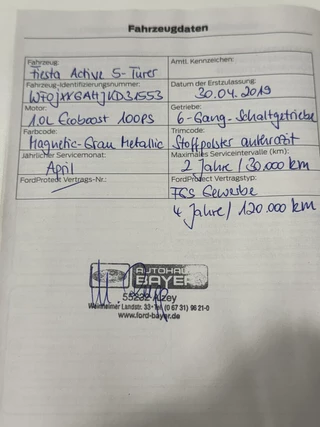 Fahrzeugdaten
Fahrzeug:
Fiesta Active 5-Türer
Amtl. Kennzeichen:
Fahrzeug-Identifizierungsnummer:
WF0JXXGAHJKD31553
Datum der Erstzulassung:
30.04.2019
Motor:
1.0L Ecoboost 100PS
Getriebe:
6-Gang-Schaltgetriebe
Farbcode:
Magnetic-Grau Metallic
Trimcode:
Stoffpolster anthrazit
Jährlicher Servicemonat:
April
Maximales Serviceintervalle (km):
2 Jahre / 30.000 km
FordProtect Vertrags-Nr.:
FordProtect Vertragstyp:
FGS Gewerbe
4 Jahre / 120.000 km
AUTOHAUS
BAYER
55232 Alzey
Weinheimer Landstr. 33 • Tel. (0 67 31) 96 21-0
www.ford-bayer.de